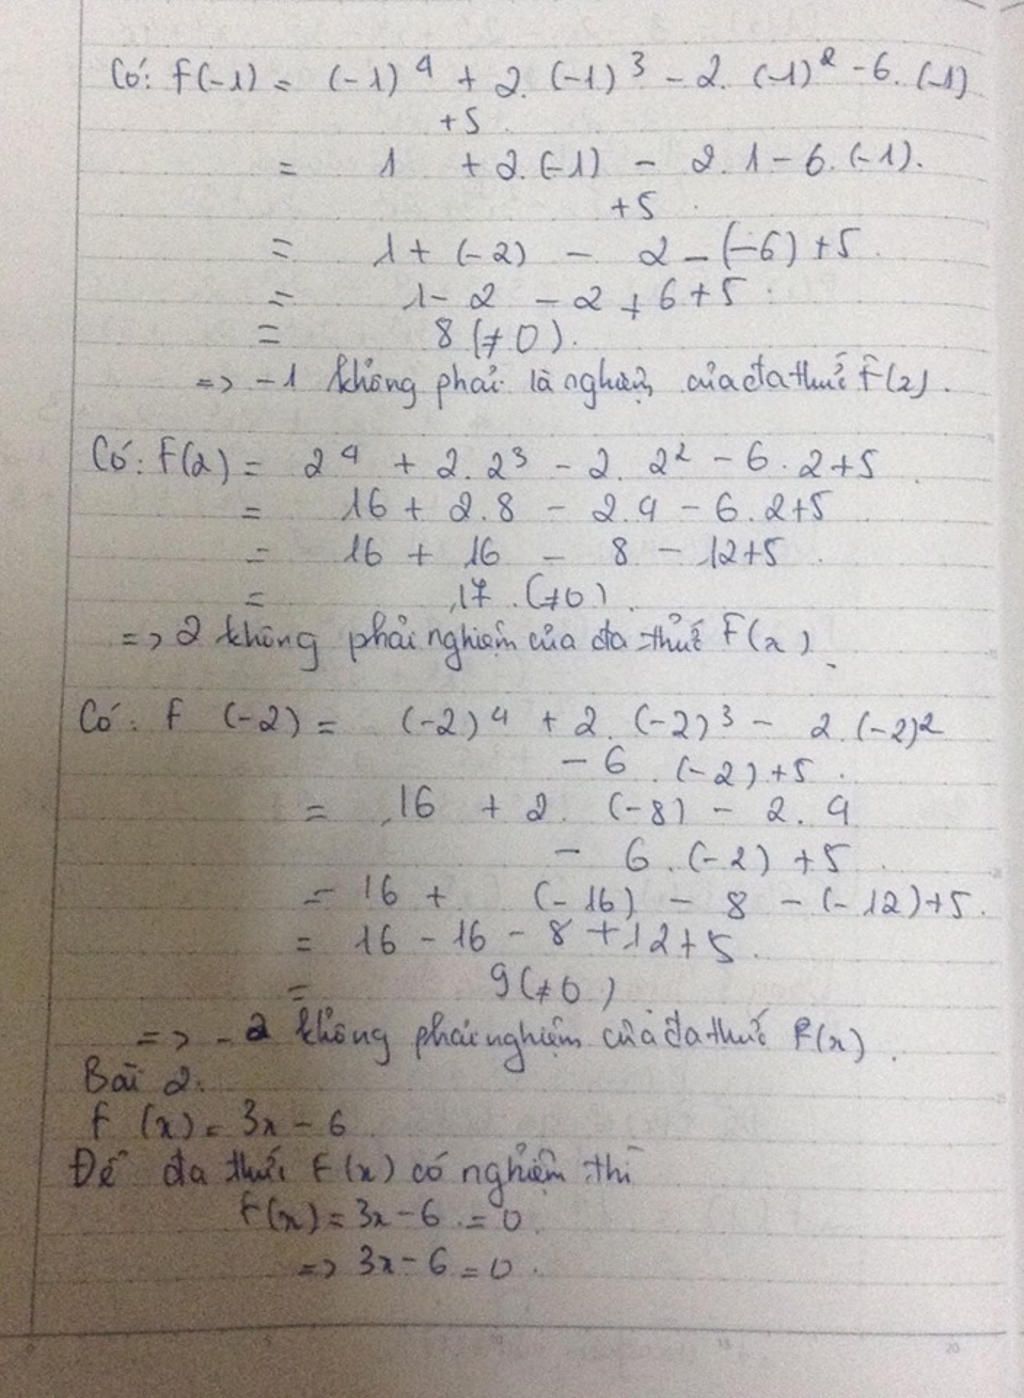 Có: F(-1) = (-1)⁴ + 2. (-1)³ - 2. (-1)² - 6. (-1)
+5.
= 1 + 2. (-1) - 2. 1 - 6. (-1).
+5.
= 1 + (-2) - 2 - (-6) + 5.
= 1 - 2 - 2 + 6 + 5.
= 8 (≠ 0).
=> -1 không phải là nghiệm của đa thức F(x).
Có: F(2) = 2⁴ + 2. 2³ - 2. 2² - 6. 2 + 5
= 16 + 2. 8 - 2. 4 - 6. 2 + 5
= 16 + 16 - 8 - 12 + 5.
= 17. (≠ 0).
=> 2 không phải nghiệm của đa thức F(x).
Có: F (-2) = (-2)⁴ + 2. (-2)³ - 2. (-2)²
- 6. (-2) + 5.
= 16 + 2. (-8) - 2. 4
- 6. (-2) + 5.
= 16 + (-16) - 8 - (-12) + 5.
= 16 - 16 - 8 + 12 + 5.
= 9 (≠ 0)
=> -2 không phải nghiệm của đa thức F(x).
Bài 2:
F (x) = 3x - 6
Để đa thức F(x) có nghiệm thì
F(x) = 3x - 6 = 0.
=> 3x - 6 = 0.